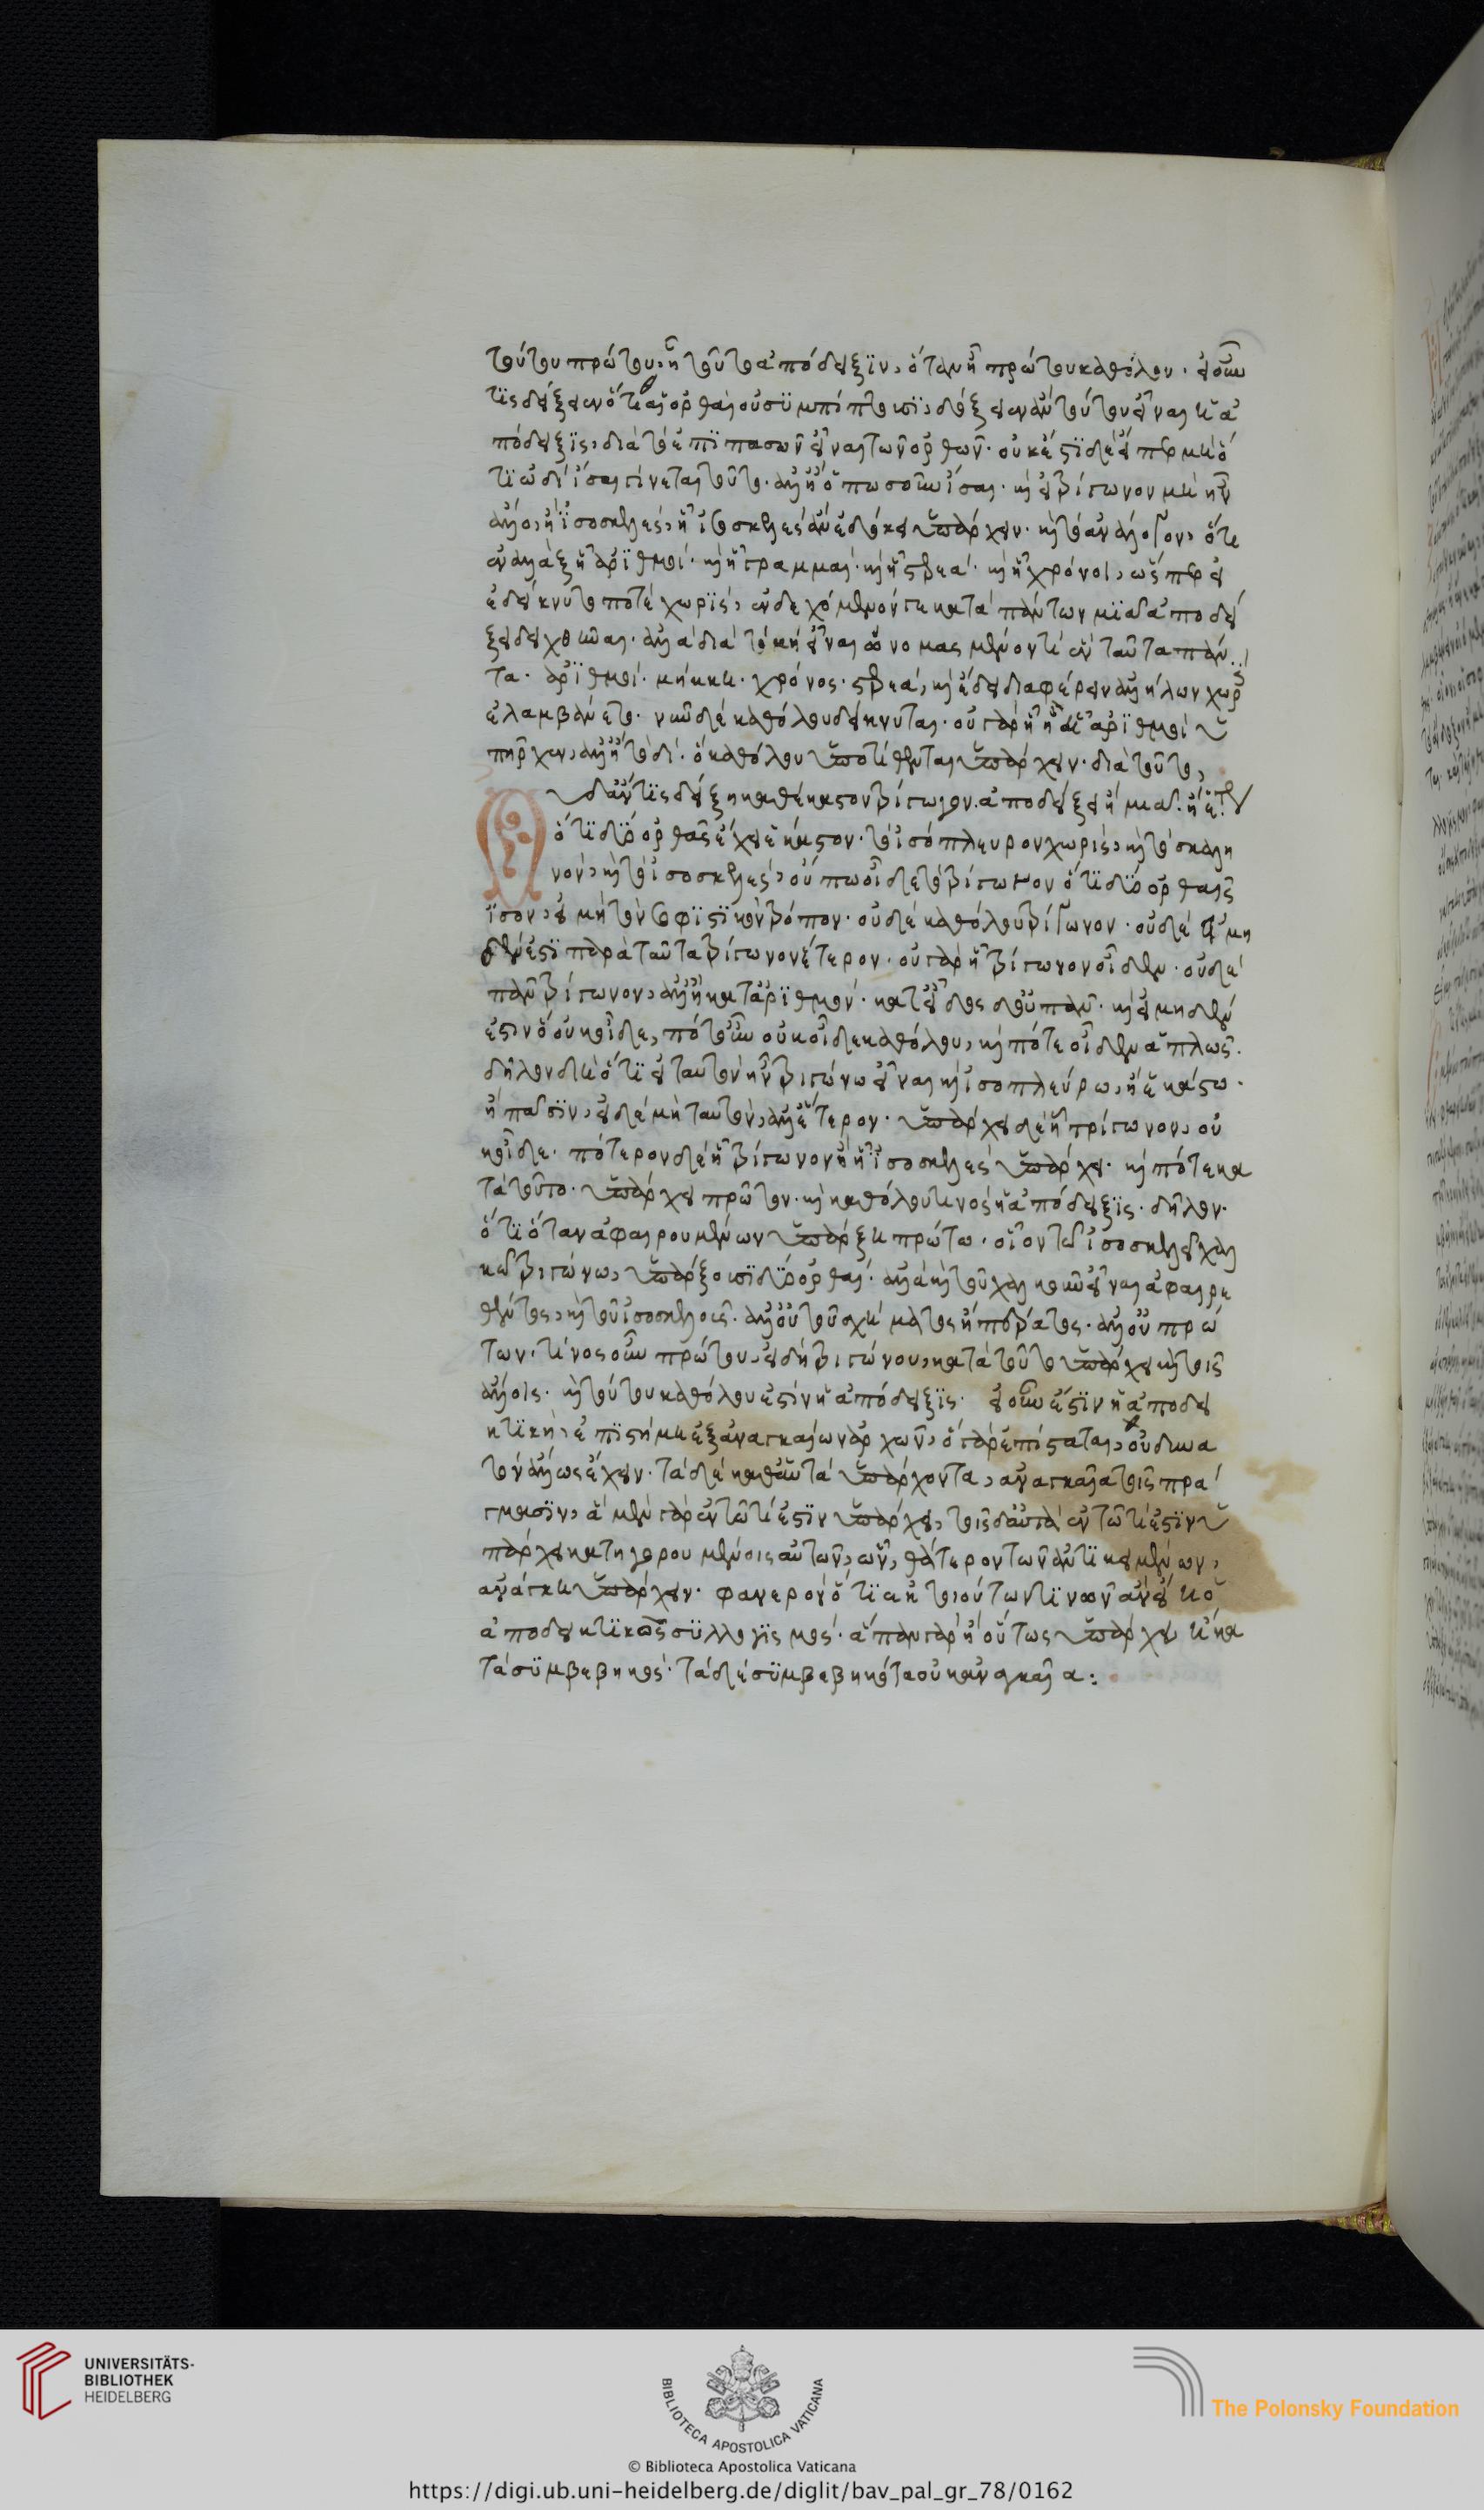 τούτου πρώτου, ᾗ τοῦτο ἀπόδειξιν, ὅταν ᾖ πρώτου καθόλου. εἰ οὖν
τις δείξειεν ὅτι αἱ ὀρθαὶ οὐ συμπίπτουσι, δόξειεν ἂν τούτου εἶναι ἡ ἀ
πόδειξις, διὰ τὸ ἐπὶ πασῶν εἶναι τῶν ὀρθῶν. οὐκ ἔστι δὲ εἴπερ μὴ ὅ
τι ὡδὶ ἴσαι γίνεται τοῦτο. ἀλλ' ᾗ ὁπωσοῦν ἴσαι. καὶ εἰ τρίγωνον μὴ ἦν
ἄλλο, ἢ ἰσοσκελές, ᾗ ἰσοσκελὲς ἂν ἐδόκει ὑπάρχειν. καὶ τὸ ἀνάλογον, ὅτι
ἐναλλὰξ ᾗ ἀριθμοί. καὶ ᾗ γραμμαί. καὶ ᾗ στερεά. καὶ ᾗ χρόνοι, ὥσπερ
ἐδείκνυτο ποτὲ χωρίς, ἐνδεχόμενόν γε κατὰ πάντων μιᾷ ἀποδεί
ξει δειχθῆναι. ἀλλὰ διὰ τὸ μὴ εἶναι ὠνομασμένον τι ἓν ταῦτα πάν
τα. ἀριθμοί. μήκη. χρόνος. στερεά, καὶ εἴδει διαφέρειν ἀλλήλων χωρὶς
ἐλαμβάνετο. νῦν δὲ καθόλου δείκνυται. οὐ γὰρ ᾗ ἢ ἀριθμοὶ ὑ
πῆρχεν, ἀλλ' ᾗ τοδί. ὃ καθόλου ὑποτίθενται ὑπάρχειν. διὰ τοῦτο,
οὐδ' ἄν τις δείξῃ καθ' ἕκαστον τρίγωνον ἀποδείξει ἢ μιᾷ. ἢ ἑτέρᾳ
ὅτι δύο ὀρθὰς ἔχει ἕκαστον. τὸ ἰσόπλευρον χωρίς, καὶ τὸ σκαλη
νόν, καὶ τὸ ἰσοσκελές, οὔπω οἶδε τὸ τρίγωνον ὅτι δύο ὀρθαῖς
ἴσον, εἰ μὴ τὸν σοφιστικὸν τρόπον. οὐδὲ καθόλου τρίγωνον. οὐδὲ εἰ μη
δέν ἐστι παρὰ ταῦτα τρίγωνον ἕτερον. οὐ γὰρ ᾗ τρίγωνον οἶδεν. οὐδὲ
πᾶν τρίγωνον, ἀλλ' ἢ κατ' ἀριθμόν. κατ' εἶδος δ' οὐ πᾶν. καὶ εἰ μηδέν
ἐστιν ὃ οὐκ οἶδε, πότ' οὖν οὐκ οἶδε καθόλου, καὶ πότε οἶδεν ἁπλῶς.
δῆλον δὴ ὅτι εἰ ταὐτὸν ἦν τριγώνῳ εἶναι καὶ ἰσοπλεύρῳ, ἢ ἑκάστῳ.
ἢ πᾶσιν, εἰ δὲ μὴ ταὐτὸν, ἀλλ' ἕτερον. ὑπάρχει δὲ ᾗ τρίγωνον, οὐ
κ οἶδε. πότερον δὲ ᾗ τρίγωνον ἢ ᾗ ἰσοσκελὲς ὑπάρχει. καὶ πότε κα
τὰ τοῦτο. ὑπάρχει πρῶτον. καὶ καθόλου τίνος ἡ ἀπόδειξις. δῆλον.
ὅτι ὅταν ἀφαιρουμένων ὑπάρξῃ πρώτῳ. οἷον τῷ ἰσοσκελεῖ χαλ
κῷ τριγώνῳ, ὑπάρξουσι δύο ὀρθαί. ἀλλὰ καὶ τοῦ χαλκοῦν εἶναι ἀφαιρε
θέντος, καὶ τοῦ ἰσοσκελοῦς. ἀλλ' οὐ τοῦ σχήματος ἢ πέρατος. ἀλλ' οὐ πρώ
των. τίνος οὖν πρώτου, εἰ δὴ τριγώνου, κατὰ τοῦτο ὑπάρχει καὶ τοῖς
ἄλλοις. καὶ τούτου καθόλου ἐστὶν ἡ ἀπόδειξις. εἰ οὖν ἐστιν ἡ ἀποδει
κτικὴ, ἐπιστήμη ἐξ ἀναγκαίων ἀρχῶν, ὃ γὰρ ἐπίσταται, οὐ δυνα
τὸν ἄλλως ἔχειν. τὰ δὲ καθ' αὑτὰ ὑπάρχοντα, ἀναγκαῖα τοῖς πρά
γμασιν, ἃ μὲν γὰρ ἐν τῷ τί ἐστιν ὑπάρχει, τοῖς δ' αὐτὰ ἐν τῷ τί ἐστιν ὑ
πάρχει κατηγορουμένοις αὐτῶν, ὧν, θάτερον τῶν ἀντικειμένων,
ἀνάγκη ὑπάρχειν. φανερὸν ὅτι ἐκ τοιούτων τινῶν ἂν εἴη ὁ
ἀποδεικτικὸς συλλογισμός. ἅπαν γὰρ ἢ οὕτως ὑπάρχει ἢ κα
τὰ συμβεβηκός. τὰ δὲ συμβεβηκότα οὐκ ἀναγκαῖα:
UNIVERSITÄTS-
BIBLIOTHEK
HEIDELBERG
BIBLIOTECA APOSTOLICA VATICANA
© Biblioteca Apostolica Vaticana
The Polonsky Foundation
https://digi.ub.uni-heidelberg.de/diglit/bav_pal_gr_78/0162